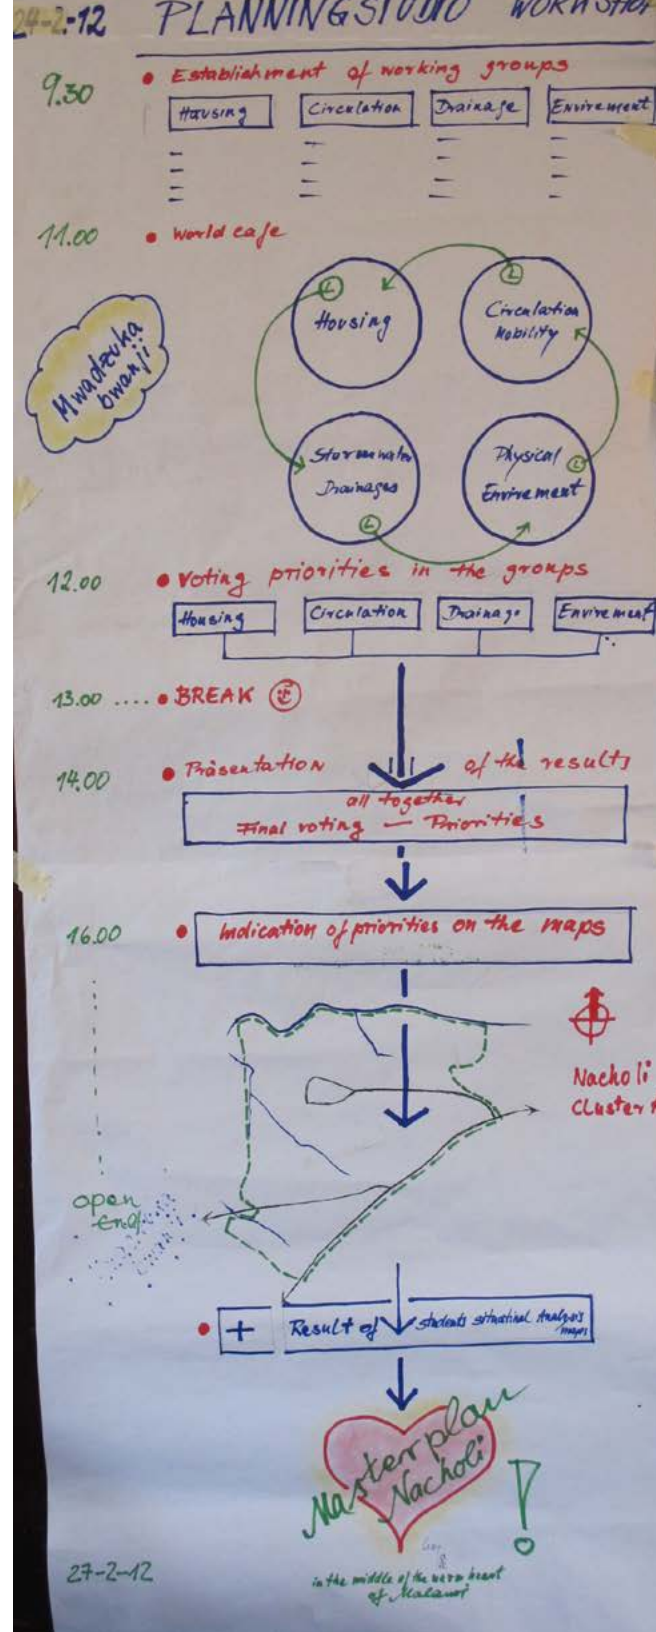 24-2-12 PLANNINGSTUDIO WORKSHOP
9.30 • Establishment of working groups
Housing Circulation Drainage Envirement
11.00 • World cafe
Mwadzuka
bwanji
L
Housing
L
Circulation
Mobility
Stormwater
Drainages
L
Physical
Envirement
L
12.00 • Voting priorities in the groups
Housing Circulation Drainage Envirement
13.00 .... • BREAK
14.00 • Präsentation of the results
all together
Final voting — Priorities
16.00 • Indication of priorities on the maps
Nacholi
Cluster
open
End
• + Result of students situatinal Analysis
maps
Masterplan
Nacholi !
27-2-12
in the middle of the warm heart
of Malawi